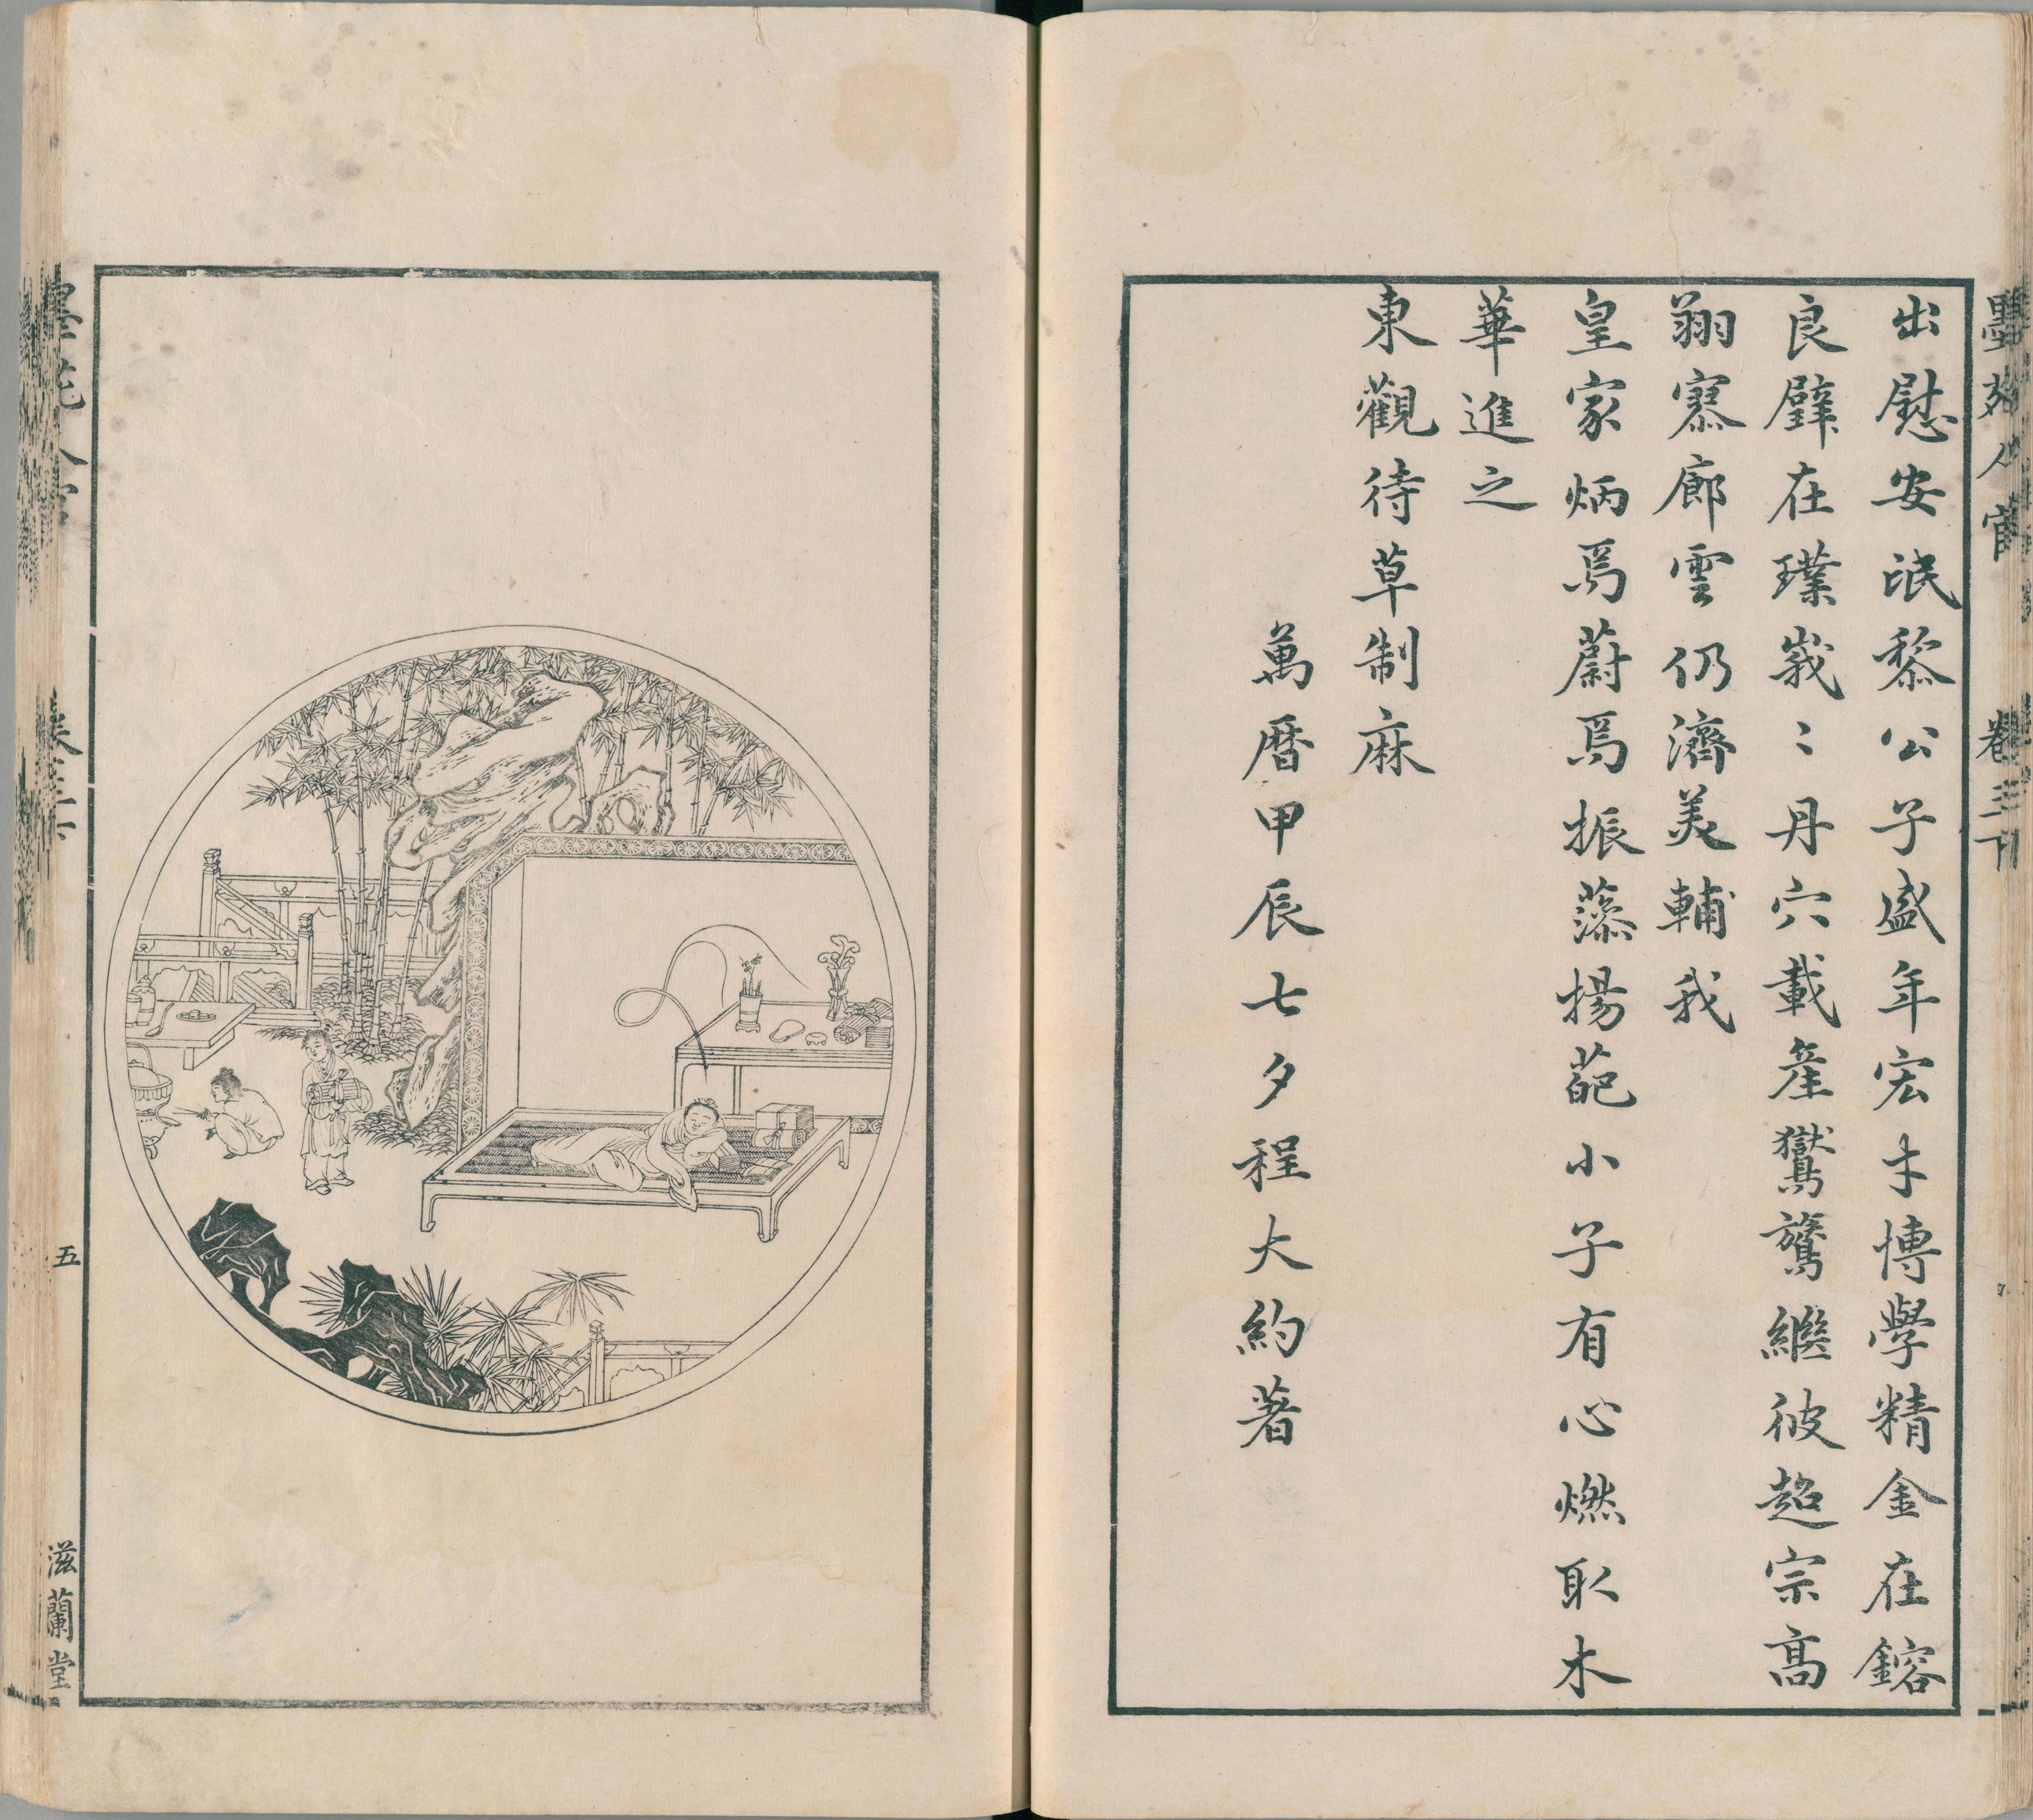 出慰安氓黎公子盛年宏才博學精金在鎔
良璧在璞峩〻丹穴載産鸑鷟繼彼超宗高
翔寥廊雲仍濟美輔我
皇家炳焉蔚焉振藻揚葩小子有心燃取木
華進之
東觀待草制麻
萬曆甲辰七夕程大約著
墨苑人官
卷三下
五
滋蘭堂